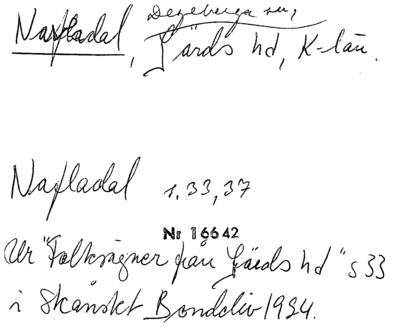 Nafladal, Degeberga sn,
Gärds hd, K-län.
Nafladal s. 33, 37
Nr 16642
Ur "Folksägner från Gärds hd" s 33
i Skånskt Bondeliv 1924.